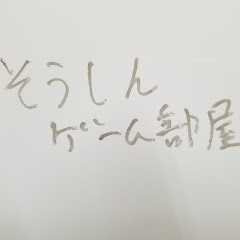 そうしん
ゲーム部屋